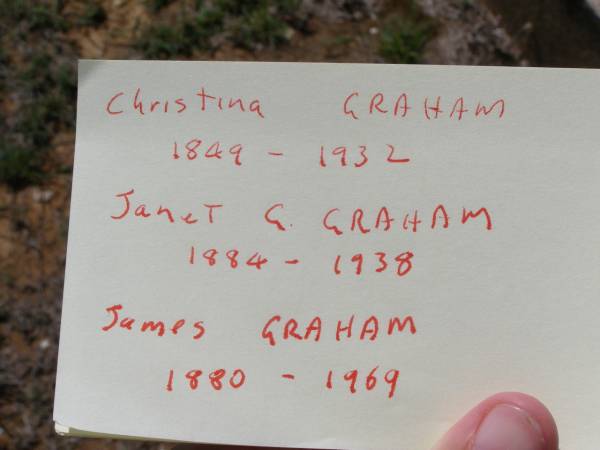 Christina GRAHAM
1849 - 1932
Janet G. GRAHAM
1884 - 1938
James GRAHAM
1880 - 1969